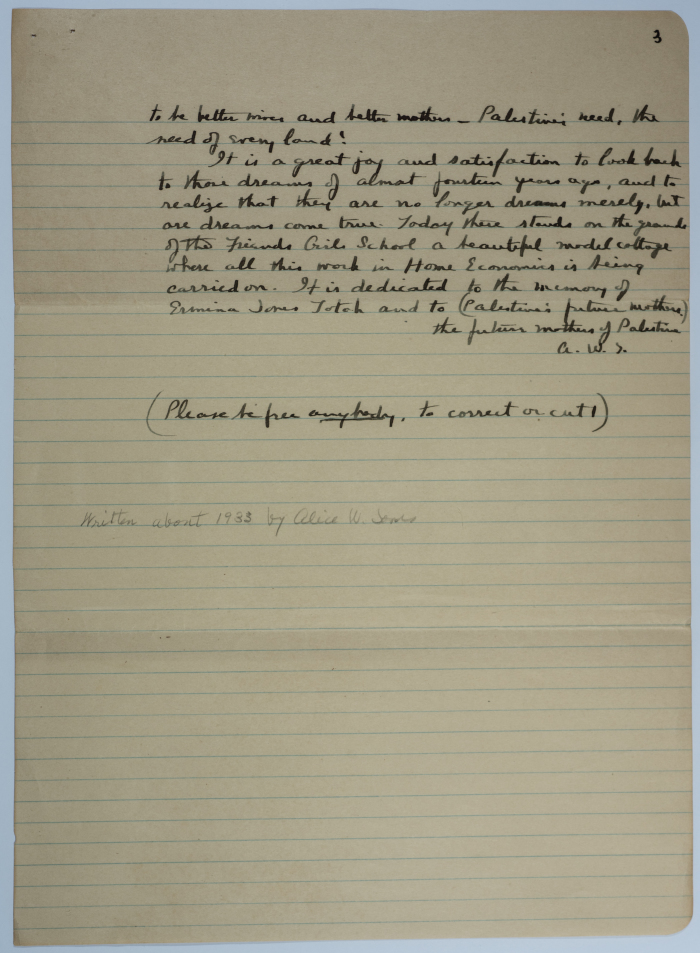 3
to be better wives and better mothers – Palestine's need, the
need of every land!
It is a great joy and satisfaction to look back
to those dreams of almost fourteen years ago, and to
realize that they are no longer dreams merely, but
are dreams come true. Today there stands on the grounds
of the Friends Girls School a beautiful model cottage
where all this work in Home Economics is being
carried on. It is dedicated to the memory of
Ermina Jones Totah and to (Palestine's future mothers)
the future mothers of Palestine
A. W. J.
(Please be free anybody, to correct or cut!)
Written about 1933 by Alice W. Jones